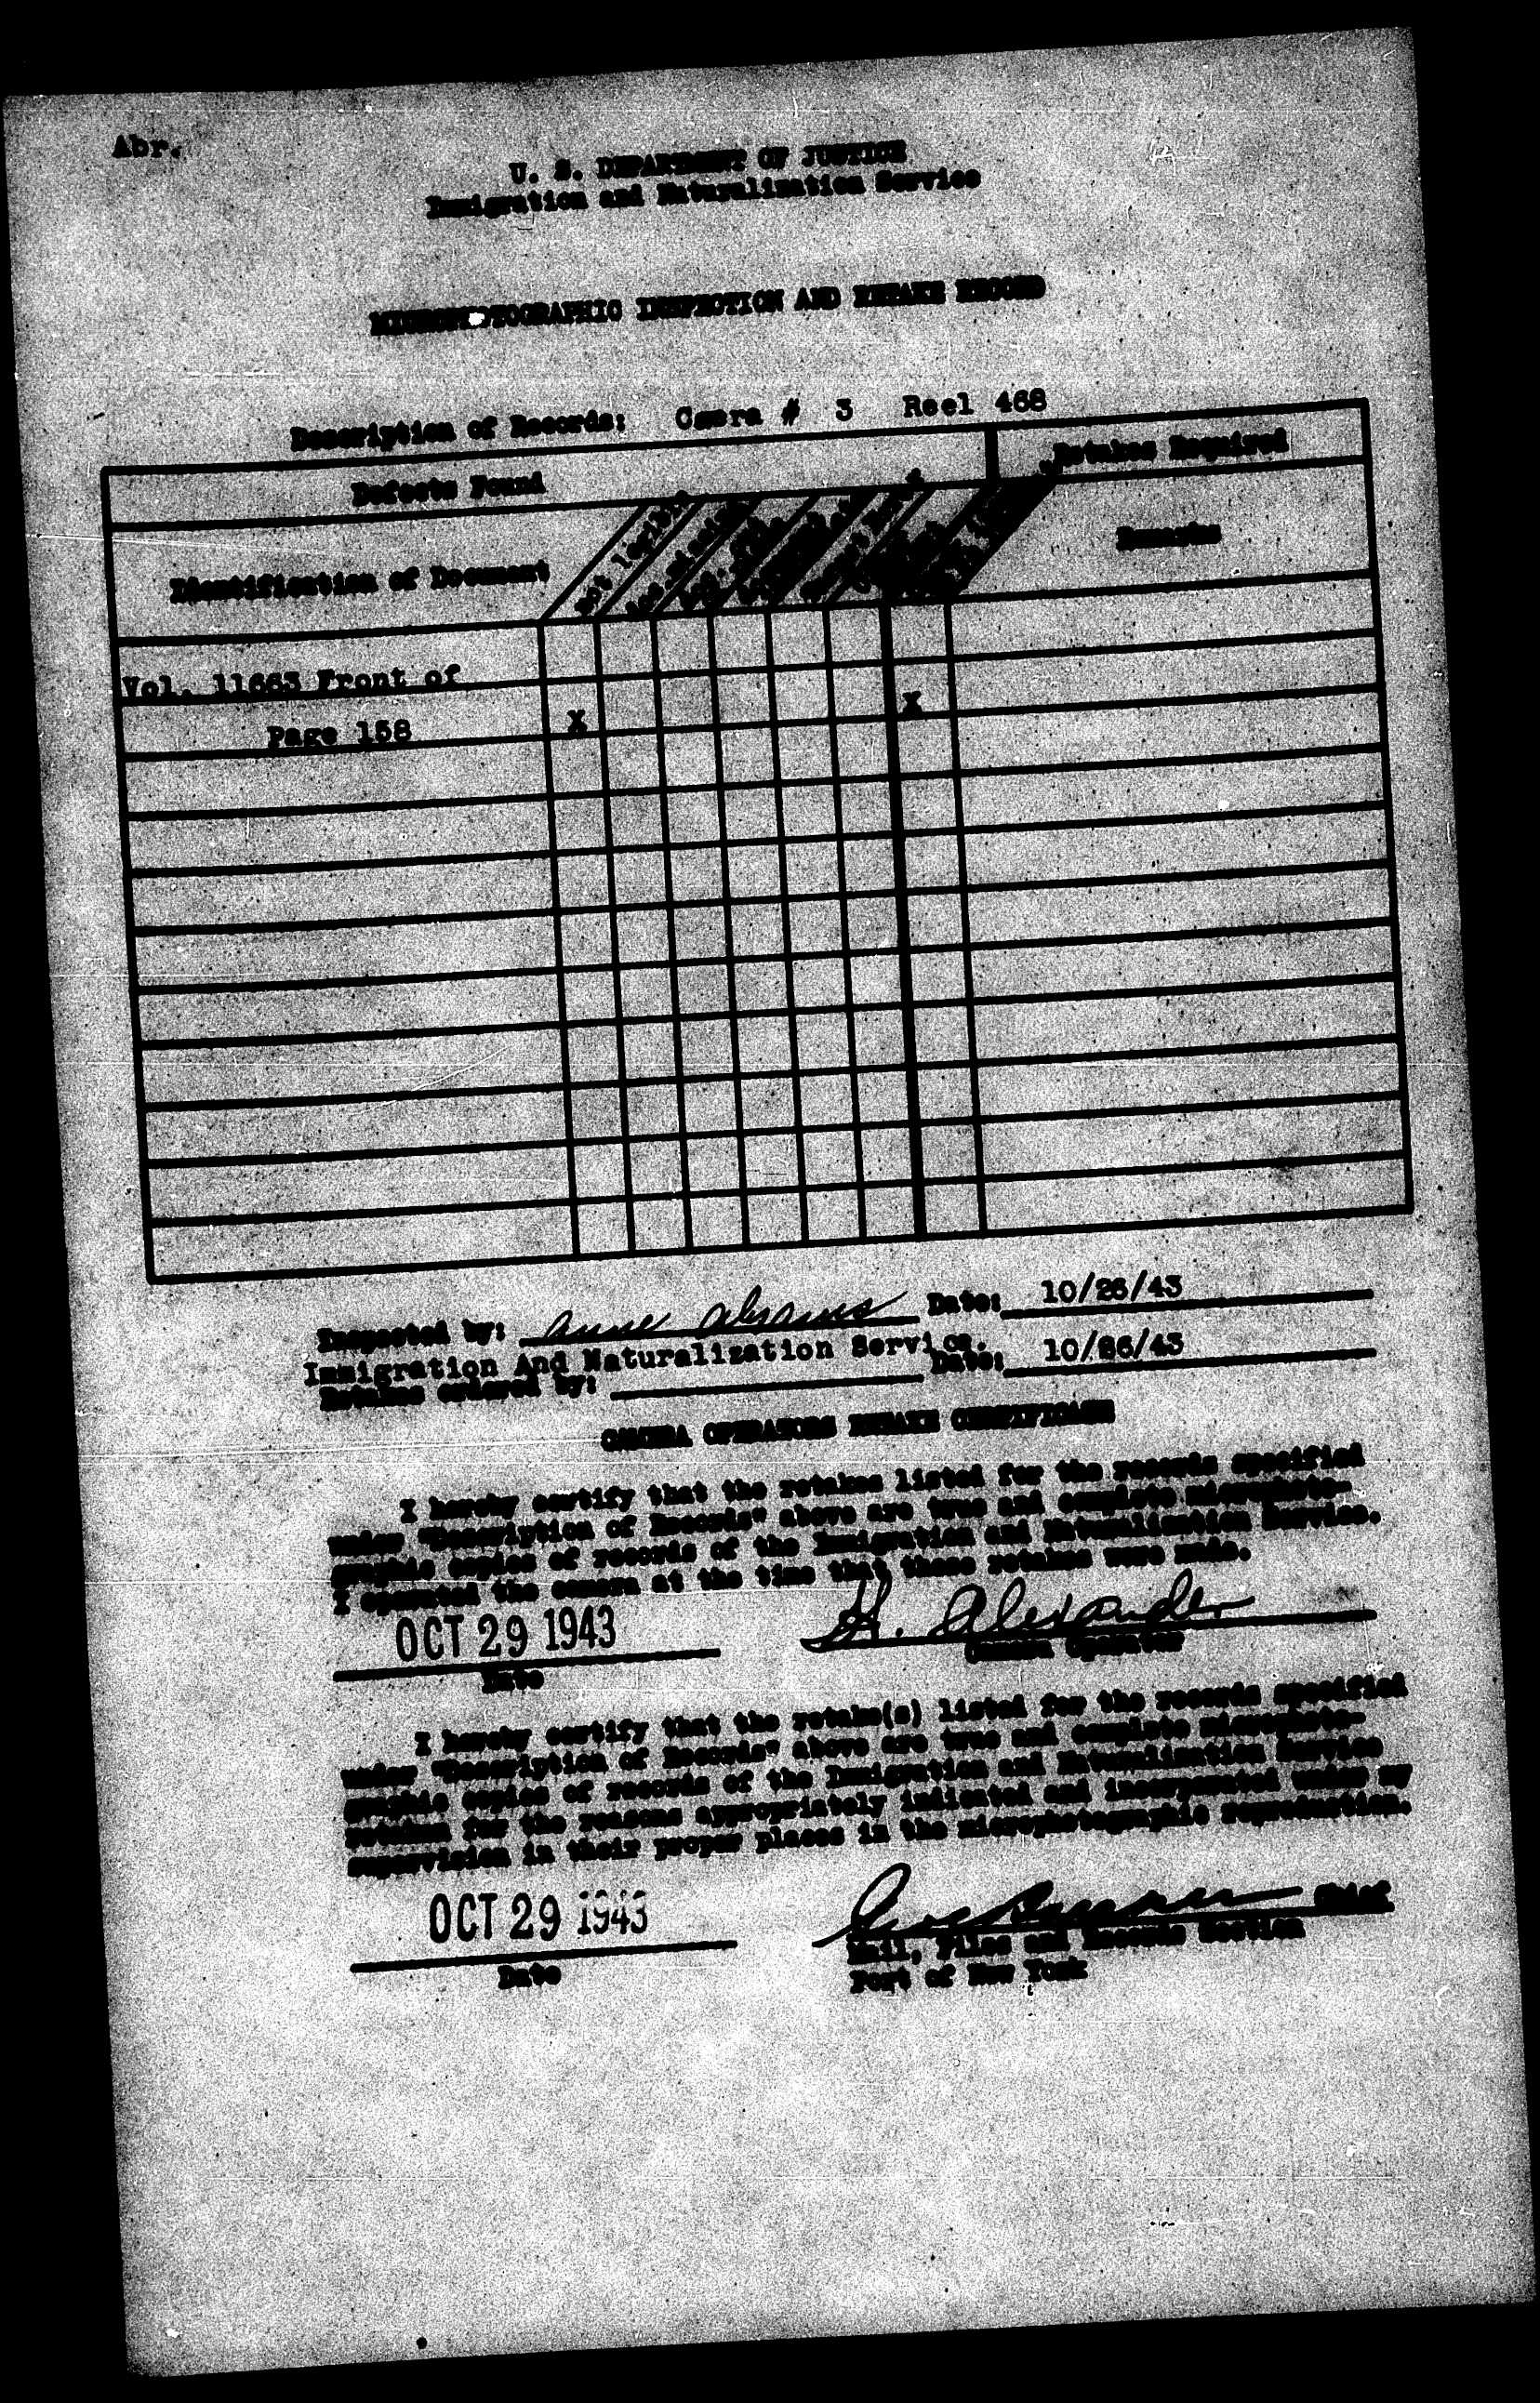 Abr.
U. S. DEPARTMENT OF JUSTICE
Immigration and Naturalization Service
MICROPHOTOGRAPHIC INSPECTION AND RETAKE RECORD
Description of Records: Camera # 3 Reel 468
Defects Found
Retakes Required
Identification of Document
Not legible
Remarks
Vol. 11663 Front of
Page 158 X X
Inspected by: Anne Abrams Date: 10/26/43
Immigration And Naturalization Service.
Retakes ordered by: Date: 10/26/43
CAMERA OPERATORS RETAKE CERTIFICATE
I hereby certify that the retakes listed for the records specified
under "Description of Records" above are true and complete microphoto-
graphic copies of records of the Immigration and Naturalization Service.
I operated the camera at the time that these retakes were made.
OCT 29 1943 H. Alexander
Date Camera Operator
I hereby certify that the retake(s) listed for the records specified
under "Description of Records" above are true and complete microphoto-
graphic copies of records of the Immigration and Naturalization Service
retaken for the reasons appropriately indicated and incorporated under my
supervision in their proper places in the microphotographic reproduction.
OCT 29 1943 Chief
Date Mail, Files and Records Section
Port of New York